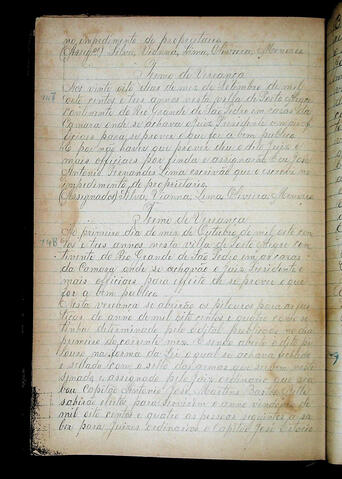 no impedimento do proprietario.
(Assig.os) Silva, Vianna, Lima, Oliveira, Menezes
Termo de Vereança
147 Aos vinte oito dias do mez de Setembro de mil
oito centos e tres annos nesta villa de Porto Alegre
continente do Rio Grande de São Pedro em casas da
Camara onde se achava o Juiz Presidente e mais of-
ficiaes para se prover o que for a bem publico
E por não haver que prover deu o dito Juiz e
mais officiaes por finda e assignarão. Eu José
Antonio Fernandes Lima escrivão que o escrevi no
impedimento do proprietario.
(Assignados) Silva, Vianna, Lima, Oliveira, Menezes
Termo de Vereança
148 Ao primeiro dia do mez de Outubro de mil oito cen-
tos e tres annos nesta villa de Porto Alegre con-
tinente do Rio Grande de São Pedro em as casas
da Camara onde se acharão o Juiz Presidente e
mais officiaes para effeito de se prover o que
for a bem publico
E nesta vereança se abrirão os pelouros para as jus-
tiças do anno de mil oito centos e quatro como se
tinha determinado pelo edital publicado no dia
primeiro do corrente mez. E sendo aberto o dito pe-
louro na forma da Lei o qual se achava fechado
e sellado com o sello das armas que servem nesta
e assignado pelo Juiz ordinario que aca-
bou Capitão Antonio José Martins Bastos. Nelle
sahirão eleitos para servirem o anno vindouro de
mil oito centos e quatro as pessoas seguintes a sa-
ber para Juizes ordinarios o Capitão José